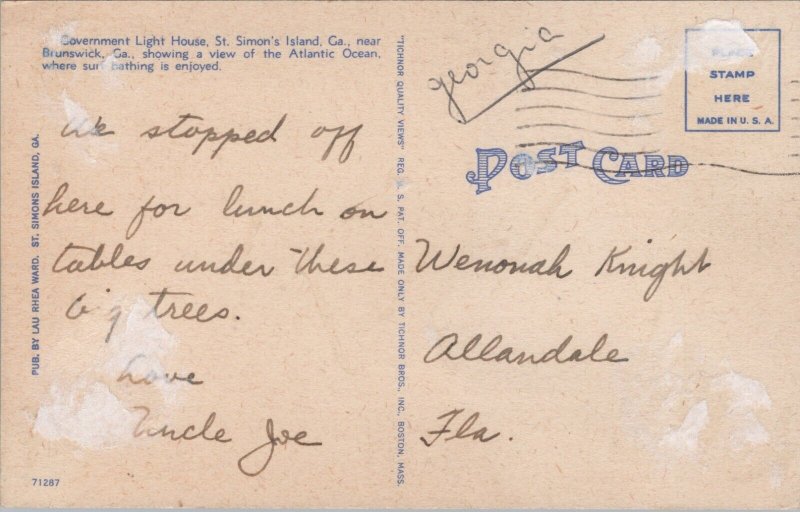 Government Light House, St. Simon's Island, Ga., near
Brunswick, Ga., showing a view of the Atlantic Ocean,
where surf bathing is enjoyed.
We stopped off
here for lunch on
tables under these
big trees.
Love
Uncle Joe
71287
PUB. BY LAU RHEA WARD. ST. SIMONS ISLAND, GA.
"TICHNOR QUALITY VIEWS" REG. U. S. PAT. OFF. MADE ONLY BY TICHNOR BROS., INC., BOSTON, MASS.
georgia
PLACE
STAMP
HERE
MADE IN U. S. A.
POST CARD
Wenonah Knight
Allandale
Fla.